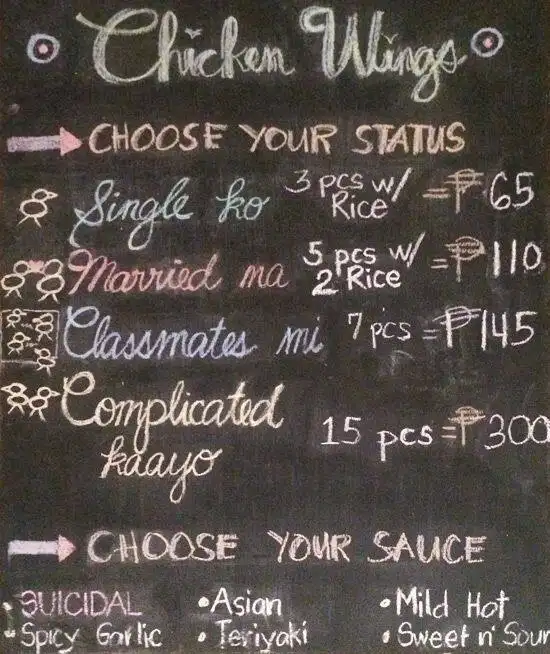 Chicken Wings
CHOOSE YOUR STATUS
Single ko 3 pcs w/ Rice =₱ 65
Married ma 5 pcs w/ 2 Rice =₱ 110
Classmates mi 7 pcs =₱ 145
Complicated kaayo 15 pcs =₱ 300
CHOOSE YOUR SAUCE
• SUICIDAL • Asian • Mild Hot
• Spicy Garlic • Teriyaki • Sweet n' Sour